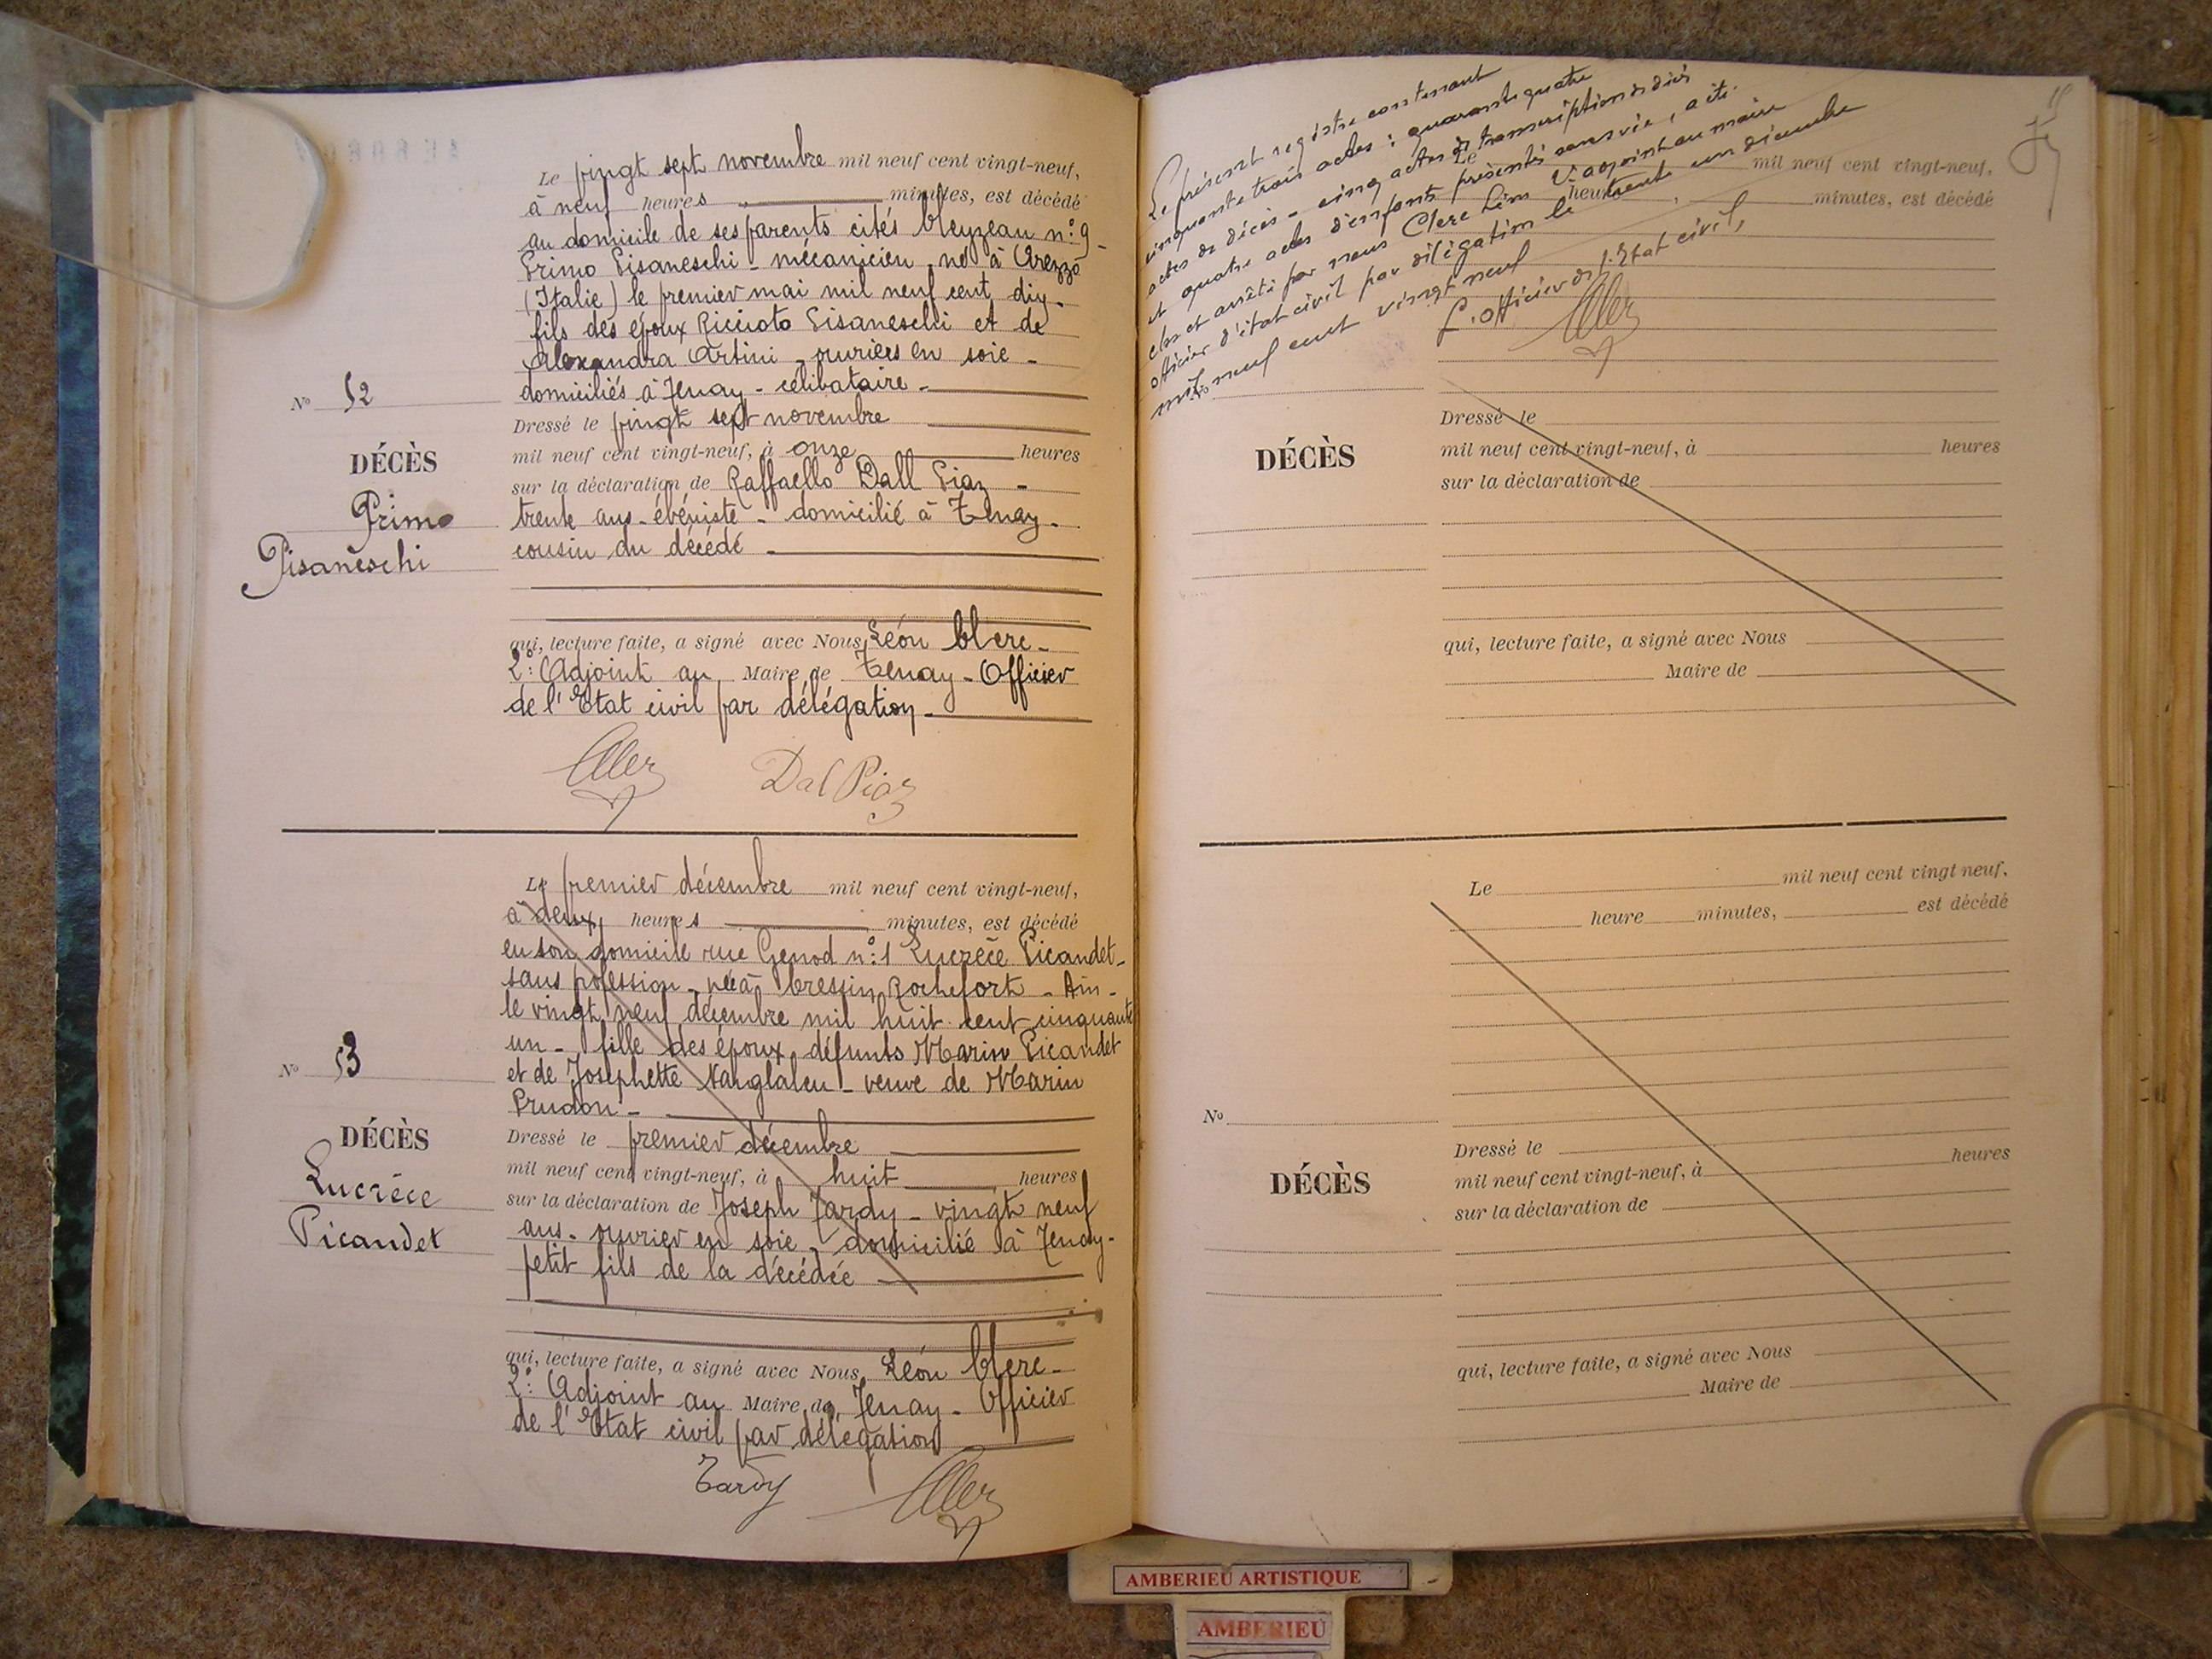 Le vingt sept novembre mil neuf cent vingt-neuf,
à neuf heures minutes, est décédé
au domicile de ses parents cités Meyzeau n° 9 -
Primo Pisaneschi - mécanicien, né à Arezzo
(Italie) le premier mai mil neuf cent dix -
fils des époux Riccioto Pisaneschi et de
Alexandra Artini - ouvriers en soie -
domiciliés à Tenay - célibataire -
Nº 52
Dressé le vingt sept novembre
mil neuf cent vingt-neuf, à onze heures
DÉCÈS
sur la déclaration de Raffaello Dall Piaz -
Primo
trente ans - ébéniste - domicilié à Tenay -
Pisaneschi
cousin du décédé -
qui, lecture faite, a signé avec Nous, Léon Clerc -
2e Adjoint au Maire de Tenay - Officier
de l'Etat civil par délégation -
Dal Piaz
Le premier décembre mil neuf cent vingt-neuf,
à deux heures minutes, est décédé
en son domicile rue Genod n° 1 Lucrèce Picandet -
sans pofession - née à Cressin Rochefort - Ain -
le vingt neuf décembre mil huit cent cinquante
un - fille des époux défunts Marin Picandet
et de Josephette Nanglaleu - veuve de Marin
Prudon -
Nº 53
DÉCÈS
Lucrèce
Picandet
Dressé le premier décembre
mil neuf cent vingt-neuf, à huit heures
sur la déclaration de Joseph Tardy - vingt neuf
ans - ouvrier en soie - domicilié à Tenay -
petit fils de la décédée
qui, lecture faite, a signé avec Nous, Léon Clerc -
2e Adjoint au Maire de Tenay - Officier
de l'Etat civil par délégation
Tardy
Le présent registre contenant
cinquante trois actes : quarante quatre
actes de décès - cinq actes de transcription de décès
et quatre actes d'enfants présentés sans vie, a été
clos et arrêté par nous Clerc Léon 2e adjoint au maire
officier d'état civil par délégation le trente un décembre
mil neuf cent vingt neuf
L'officier de l'Etat civil,
Le mil neuf cent vingt-neuf,
heure minutes, est décédé
Nº
DÉCÈS
Dressé le
mil neuf cent vingt-neuf, à heures
sur la déclaration de
qui, lecture faite, a signé avec Nous
Maire de
Le mil neuf cent vingt neuf,
heure minutes, est décédé
Nº
DÉCÈS
Dressé le
mil neuf cent vingt-neuf, à heures
sur la déclaration de
qui, lecture faite, a signé avec Nous
Maire de
AMBERIEU ARTISTIQUE
AMBERIEU